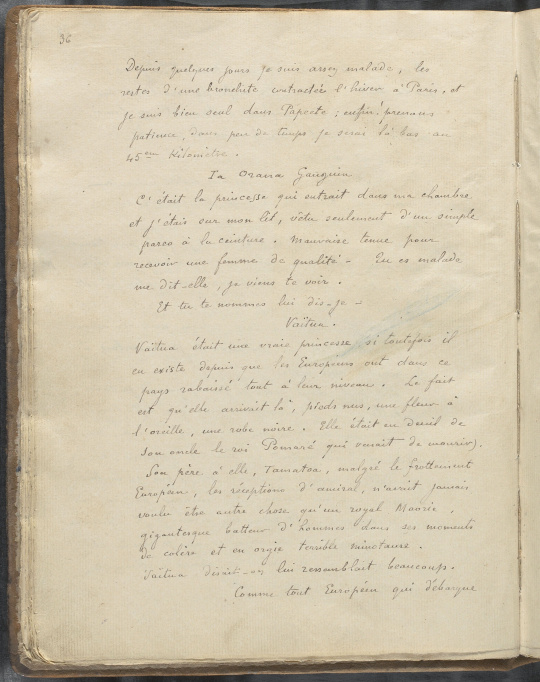 36
Depuis quelques jours je suis assez malade, les
restes d'une bronchite contractée l'hiver à Paris, et
je suis bien seul dans Papeete ; enfin! prenons
patience, dans peu de temps je serai là bas au
45em Kilomètre.
Ia Orana Gauguin
C'était la princesse qui entrait dans ma chambre
et j'étais sur mon lit, vêtu seulement d'un simple
pareo à la ceinture. Mauvaise tenue pour
recevoir une femme de qualité - Tu es malade
me dit-elle, je viens te voir.
Et tu te nommes lui dis-je -
Vaïtua.
Vaïtua était une vraie princesse si toutefois il
en existe depuis que les Européens ont dans ce
pays rabaissé tout à leur niveau. Le fait
est qu'elle arrivait là, pieds nus, une fleur à
l'oreille, une robe noire. Elle était en deuil de
son oncle le roi Pomaré qui venait de mourir).
Son père à elle, Tamatoa, malgré le frottement
Européen, les réceptions d'amiral, n'avait jamais
voulu être autre chose qu'un royal Maorie,
gigantesque batteur d'hommes dans ses moments
de colère et en orgie terrible minotaure.
Vaïtua disait-on lui ressemblait beaucoup.
Comme tout Européen qui débarque